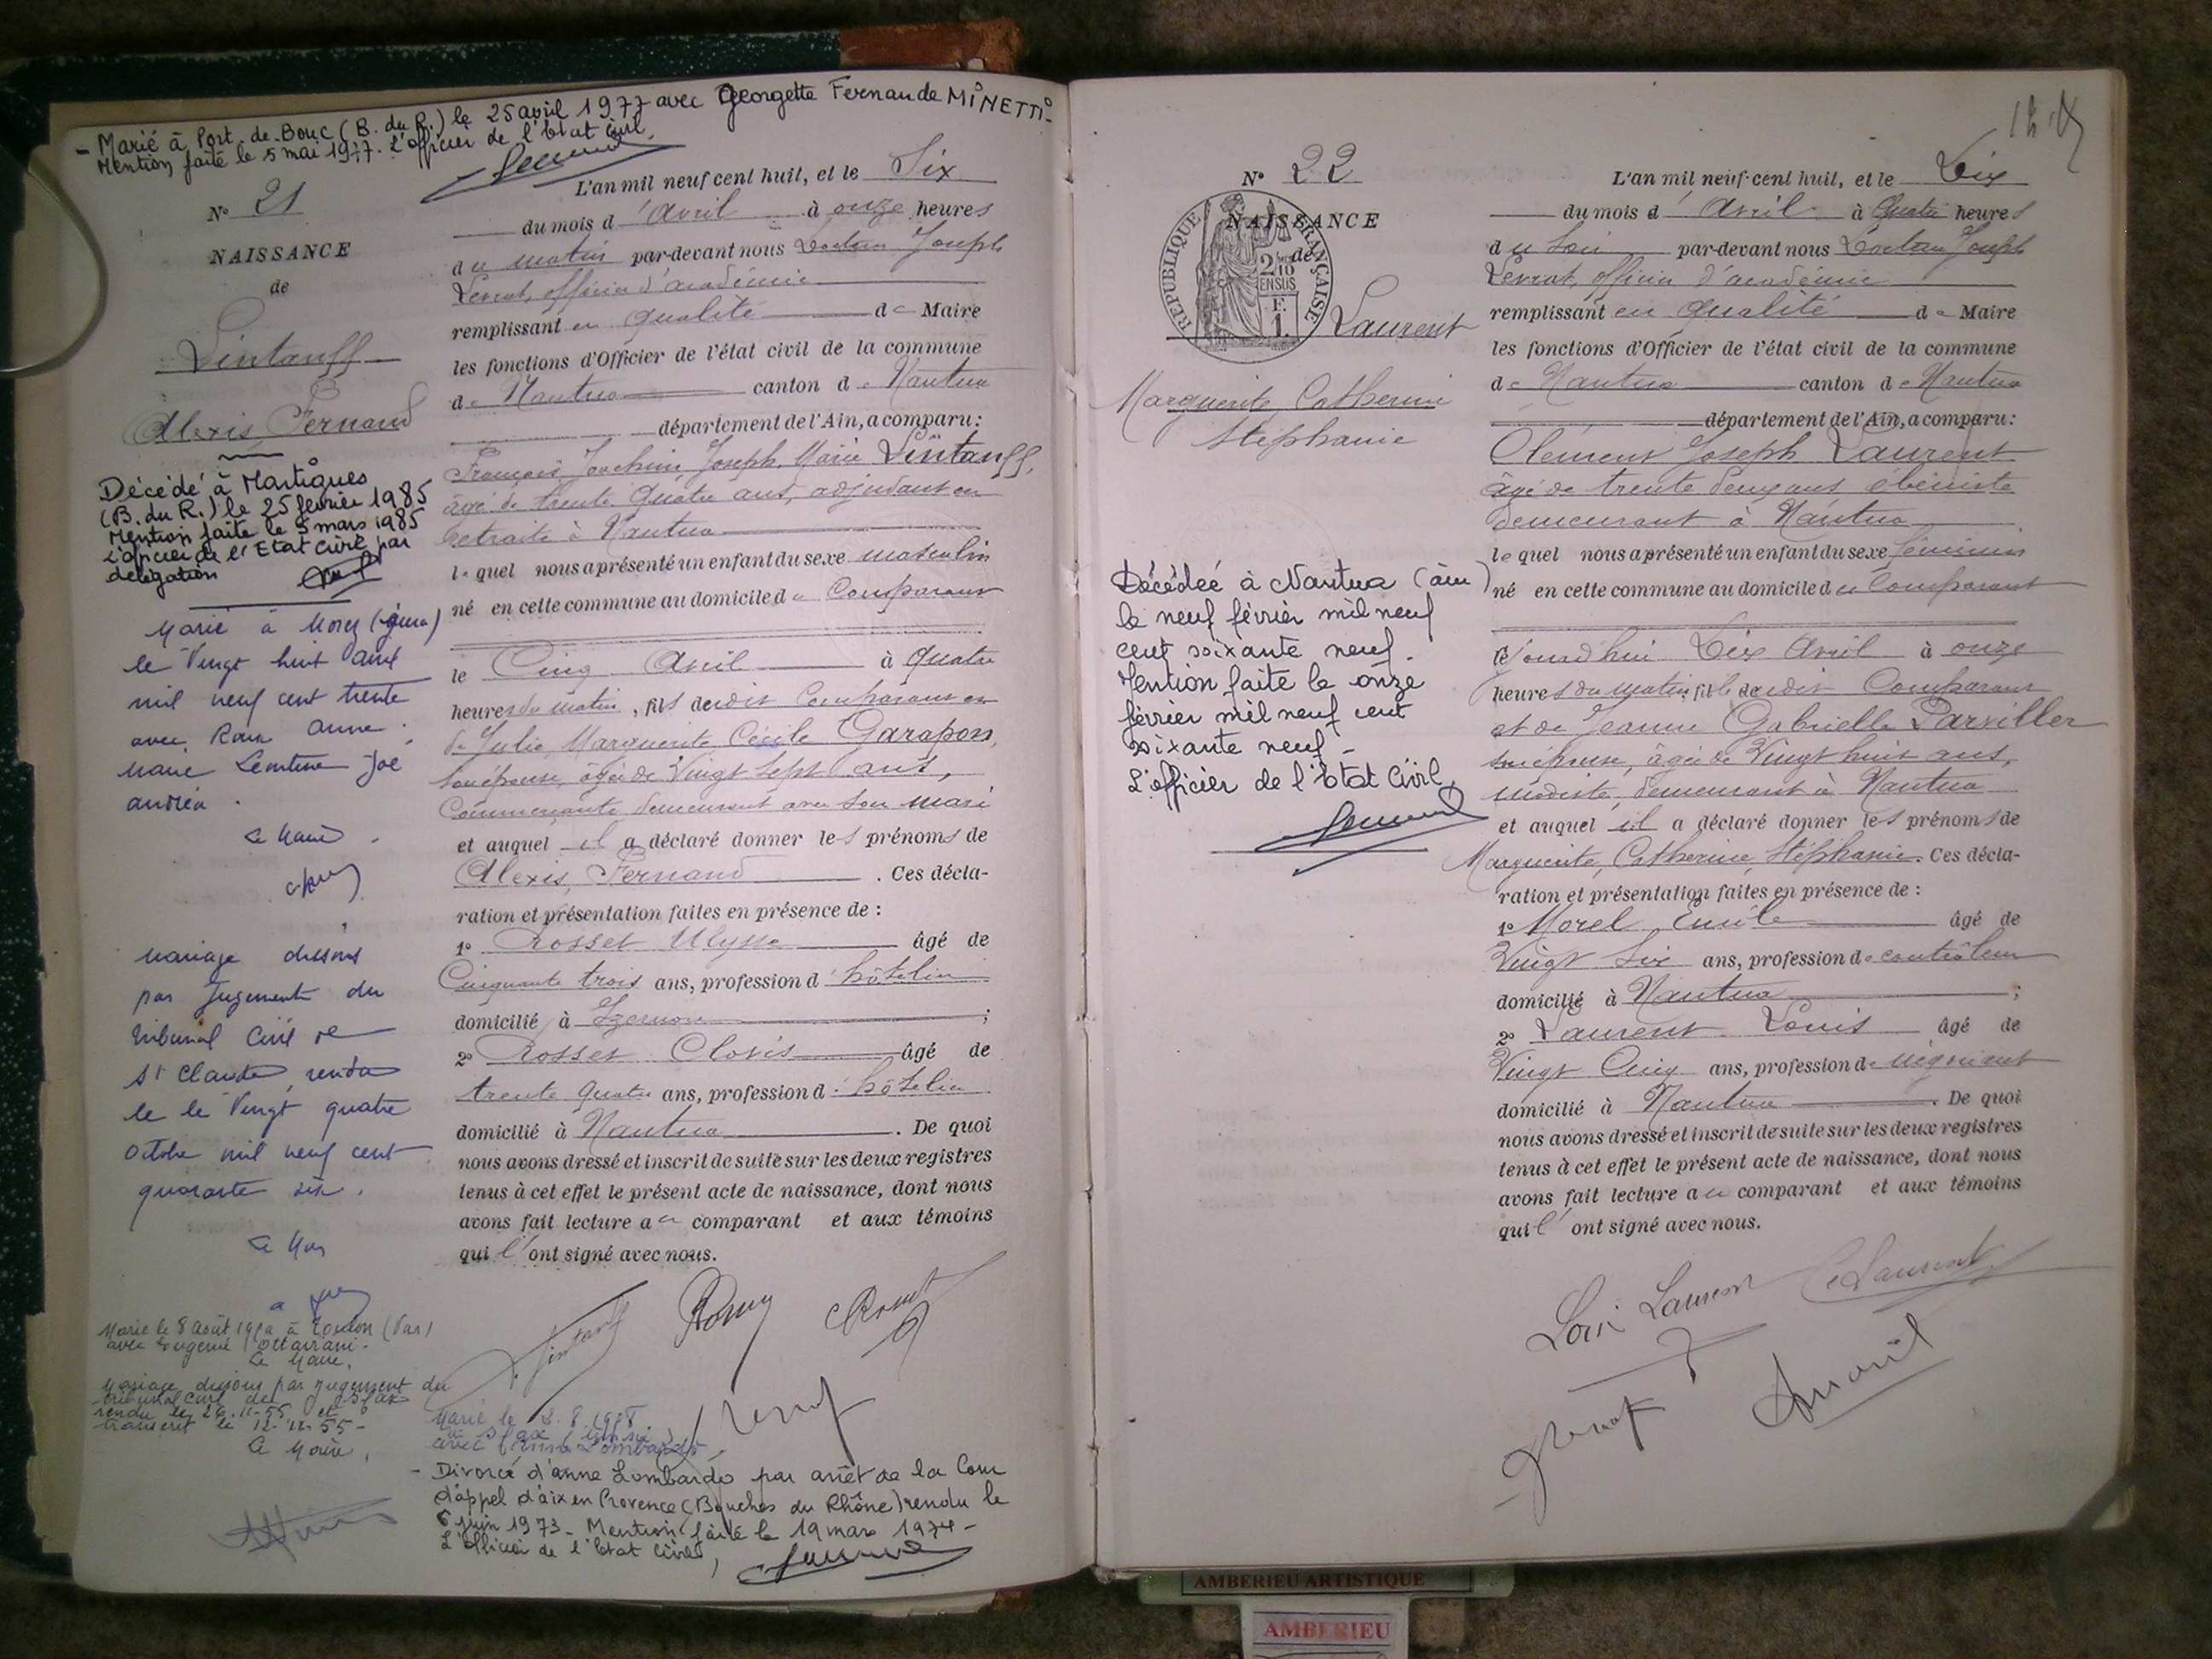 - Marié à Port-de-Bouc (B. du R.) le 25 avril 1977 avec Georgette Fernande MINETTI-
Mention faite le 5 mai 1977. L'officier de l'Etat Civil,
N° 21
NAISSANCE
de
Lintanff
Alexis Fernand
Décédé à Martigues
(B. du R.) le 25 février 1985
Mention faite le 5 mars 1985
L'officier de l'Etat Civil par
délégation
Marié à Morez (Jura)
le Vingt huit août
mil neuf cent trente
avec Anne
Marie Zoé
Andréa.
Le Maire.
Mariage dissous
par Jugement du
Tribunal Civil de
St Claude, rendu
le le Vingt quatre
octobre mil neuf cent
quarante six.
Le Maire
Marié le 8 Août à Toulon (Var)
avec Eugénie Ottaviani.
Le Maire,
Mariage dissous par jugement du
tribunal civil de Sfax
rendu le 26-11-55 et
transcrit le 12-12-55-
Le Maire,
L'an mil neuf cent huit, et le Six
du mois d'Avril à onze heures
du matin par-devant nous Docteur Joseph
Levrat, officier d'académie
remplissant en qualité de Maire
les fonctions d'Officier de l'état civil de la commune
de Nantua canton de Nantua
département de l'Ain, a comparu:
François Joachim Joseph Marie Lintanff,
âgé de trente quatre ans, adjudant en
retraite à Nantua
lequel nous a présenté un enfant du sexe masculin
né en cette commune au domicile du Comparant
le Cinq Avril à quatre
heures du matin, fils dudit Comparant et
de Julie Marguerite Cécile Garapon,
son épouse, âgée de Vingt sept ans,
Commerçante demeurant avec son mari
et auquel il a déclaré donner les prénoms de
Alexis, Fernand. Ces décla-
ration et présentation faites en présence de :
1° Rosset Ulysse âgé de
Cinquante trois ans, profession d'hôtelier
domicilié à Izernore ;
2° Rosset Clovis âgé de
trente quatre ans, profession d'hôtelier
domicilié à Nantua. De quoi
nous avons dressé et inscrit de suite sur les deux registres
tenus à cet effet le présent acte de naissance, dont nous
avons fait lecture au comparant et aux témoins
qui l'ont signé avec nous.
Marié le
avec Anna Lombardo
- Divorcé d'Anne Lombardo par arrêt de la Cour
d'appel d'Aix en Provence (Bouches du Rhône) rendu le
6 juin 1973 - Mention faite le 19 mars 1974 -
L'officier de l'Etat Civil,
N° 22
NAISSANCE
de
RÉPUBLIQUE FRANÇAISE
Laurent
Marguerite Catherine
Stéphanie
Décédée à Nantua (Ain)
le neuf février mil neuf
cent soixante neuf.
Mention faite le onze
février mil neuf cent
soixante neuf -
L'officier de l'Etat Civil,
L'an mil neuf cent huit, et le Dix
du mois d'Avril à Quatre heures
du soir par-devant nous Docteur Joseph
Levrat, officier d'académie
remplissant en qualité de Maire
les fonctions d'Officier de l'état civil de la commune
de Nantua canton de Nantua
département de l'Ain, a comparu:
Clément Joseph Laurent
âgé de trente deux ans ébéniste
demeurant à Nantua
lequel nous a présenté un enfant du sexe féminin
né en cette commune au domicile du Comparant
Dix Avril à onze
heures du matin, fille dudit Comparant
et de Jeanne Gabrielle Parviller
son épouse, âgée de Vingt huit ans,
modiste, demeurant à Nantua
et auquel il a déclaré donner les prénoms de
Marguerite, Catherine, Stéphanie. Ces décla-
ration et présentation faites en présence de :
1° Morel Emile âgé de
Vingt Six ans, profession de contrôleur
domicilié à Nantua ;
2° Laurent Louis âgé de
Vingt Cinq ans, profession de négociant
domicilié à Nantua. De quoi
nous avons dressé et inscrit de suite sur les deux registres
tenus à cet effet le présent acte de naissance, dont nous
avons fait lecture au comparant et aux témoins
qui l'ont signé avec nous.
Laurent
C Laurent
AMBERIEU ARTISTIQUE
AMBERIEU